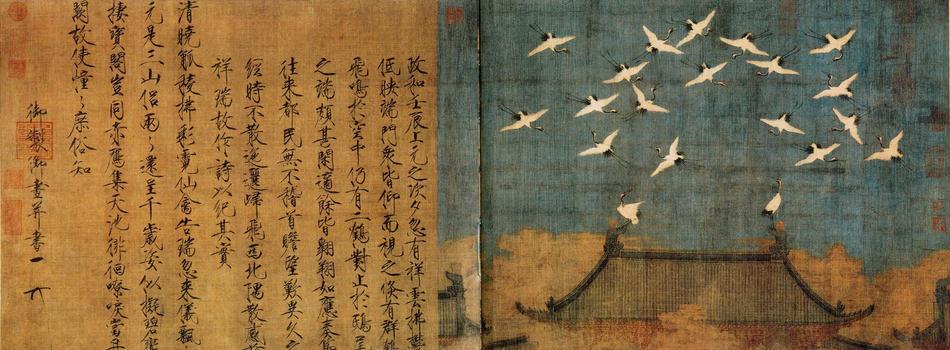 政和壬辰上元之次夕忽有祥雲拂鬱
低映端門衆皆仰而視之倐有群鶴
飛鳴於空中仍有二鶴對止於鴟
之端頗甚閑適餘皆翱翔如應奏
往来都民無不稽首瞻望歎異久之
經時不散迤邐歸飛西北隅散感
祥瑞故作詩以紀其實
清曉觚稜拂彩霓仙禽告瑞忽来儀飄
元是三山侶兩〻還呈千歲姿似擬碧鸞
棲寶閣豈同赤鴈集天池徘徊嘹唳當丹
闕故使憧〻庶俗知
御製御畫并書